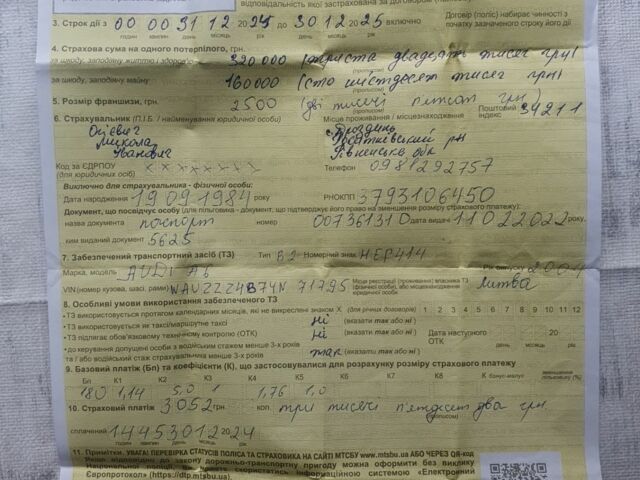 відповідальності застрахована за договором
3. Строк дії з 00 00 31 12 2024 до 30 12 2025 включно
Договір (поліс) набирає чинності з початку зазначеного строку його дії
годин хвилин день місяць рік день місяць рік
4. Страхова сума на одного потерпілого, грн.
за шкоду, заподіяну життю і здоров'ю 320000 (триста двадцять тисяч грн)
(прописом)
за шкоду, заподіяну майну 160000 (сто шістдесят тисяч грн)
(прописом)
5. Розмір франшизи, грн. 2500 (дві тисячі п'ятсот грн)
6. Страхувальник (П.І.Б. / найменування юридичної особи)
Місце проживання / місцезнаходження Поштовий індекс 34211
Осієвич
Микола
Іванович
Рівненська обл
Код за ЄДРПОУ
(для юридичних осіб) Телефон 0981292757
Виключно для страхувальника - фізичної особи:
Дата народження 19 09 1984 року РНОКПП 3793106450
Документ, що посвідчує особу (для пільговика - документ, що підтверджує його право на зменшення розміру страхового платежу):
назва документа паспорт номер 007361310 дата видачі 11 02 2022 року,
ким виданий документ 5625
7. Забезпечений транспортний засіб (ТЗ) Тип В2 Номерний знак НЕР414
Марка, модель AUDI A6 Рік випуску 2004
VIN (номер кузова, шасі, рами) WAUZZZ4B74N 71795 Місце реєстрації (проживання) власника ТЗ (фізичної особи), або місцезнаходження юридичної особи Литва
8. Особливі умови використання забезпеченого ТЗ
•ТЗ використовується протягом календарних місяців, які не викреслені знаком Х (для річних договорів) 1 2 3 4 5 6 7 8 9 10 11 12
•ТЗ використовується як таксі/маршрутне таксі ні (вказати так або ні)
•ТЗ підлягає обов'язковому технічному контролю (ОТК) ні (вказати так або ні) Дата наступного ОТК 20
день місяць рік
•до керування допущені особи з водійським стажем менше 3-х років
та / або водійський стаж страхувальника менше 3-х років так (вказати так або ні)
9. Базовий платіж (Бп) та коефіцієнти (К), що застосовувалися для розрахунку розміру страхового платежу
Бп К1 К2 К3 К4 К5 К6 К7 К8 К бонус-малус
180 1,14 5,0 1 1,76 1,0
10. Страховий платіж 3052 грн. коп три тисячі п'ятдесят два грн
(прописом)
сплачений 14 45 30 12 2024
годин хвилин день місяць рік
11. Примітки. УВАГА! ПЕРЕВІРКА СТАТУСІВ ПОЛІСА ТА СТРАХОВИКА НА САЙТІ МТСБУ www.mtsbu.ua АБО ЧЕРЕЗ QR-код
Якщо відповідно до закону дорожньо-транспортну пригоду можна оформити без виклику
Національної поліції,
Європротокол» (https://dtp.mtsbu.ua).
інформаційною системою «Електронний